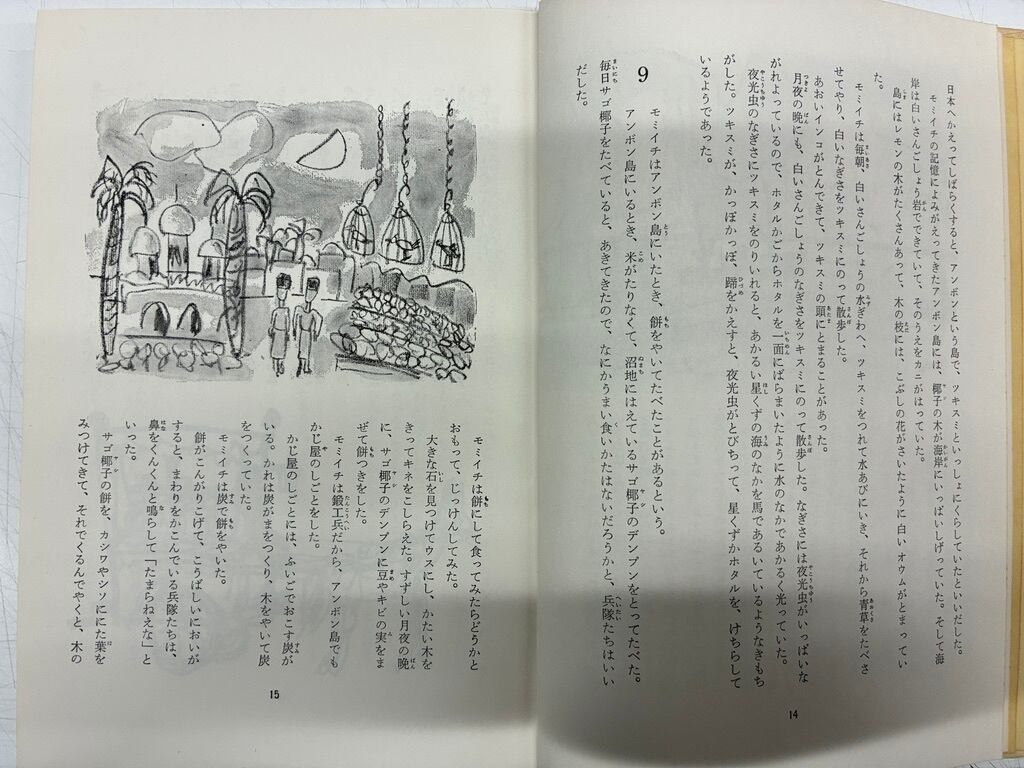 日本へかえってしばらくすると、アンボンという島で、ツキスミといっしょにくらしていたといいだした。
モミイチの記憶によみがえってきたアンボン島には、椰子の木が海岸にいっぱいしげっていた。そして海
岸は白いさんごしょう岩でできていて、そのうえをカニがはっていた。
島にはレモンの木がたくさんあって、木の枝には、こぶしの花がさいたように白いオウムがとまってい
た。
モミイチは毎朝、白いさんごしょうの水ぎわへ、ツキスミをつれて水あびにいき、それから青草をたべさ
せてやり、白いなぎさをツキスミにのって散歩した。
あおいインコがとんできて、ツキスミの頭にとまることがあった。
月夜の晩にも、白いさんごしょうのなぎさをツキスミにのって散歩した。なぎさには夜光虫がいっぱいな
がれよっているので、ホタルかごからホタルを一面にばらまいたように水のなかであかるく光っていた。
夜光虫のなぎさにツキスミをのりいれると、あかるい星くずの海のなかを馬であるいているようなきもち
がした。ツキスミが、かっぽかっぽ、蹄をかえすと、夜光虫がとびちって、星くずかホタルを、けちらして
いるようであった。
9
モミイチはアンボン島にいたとき、餅をやいてたべたことがあるという。
アンボン島にいるとき、米がたりなくて、沼地にはえているサゴ椰子のデンプンをとってたべた。
毎日サゴ椰子をたべていると、あきてきたので、なにかうまい食いかたはないだろうかと、兵隊たちはいい
だした。
14
モミイチは餅にして食ってみたらどうかと
おもって、じっけんしてみた。
大きな石を見つけてウスにし、かたい木を
きってキネをこしらえた。すずしい月夜の晩
に、サゴ椰子のデンプンに豆やキビの実をま
ぜて餅つきをした。
モミイチは鍛工兵だから、アンボン島でも
かじ屋のしごとをした。
かじ屋のしごとには、ふいごでおこす炭が
いる。かれは炭がまをつくり、木をやいて炭
をつくっていた。
モミイチは炭で餅をやいた。
餅がこんがりこげて、こうばしいにおいが
すると、まわりをかこんでいる兵隊たちは、
鼻をくんくんと鳴らして「たまらねえな」と
いった。
サゴ椰子の餅を、カシワやシソににた葉を
みつけてきて、それでくるんでやくと、木の
15